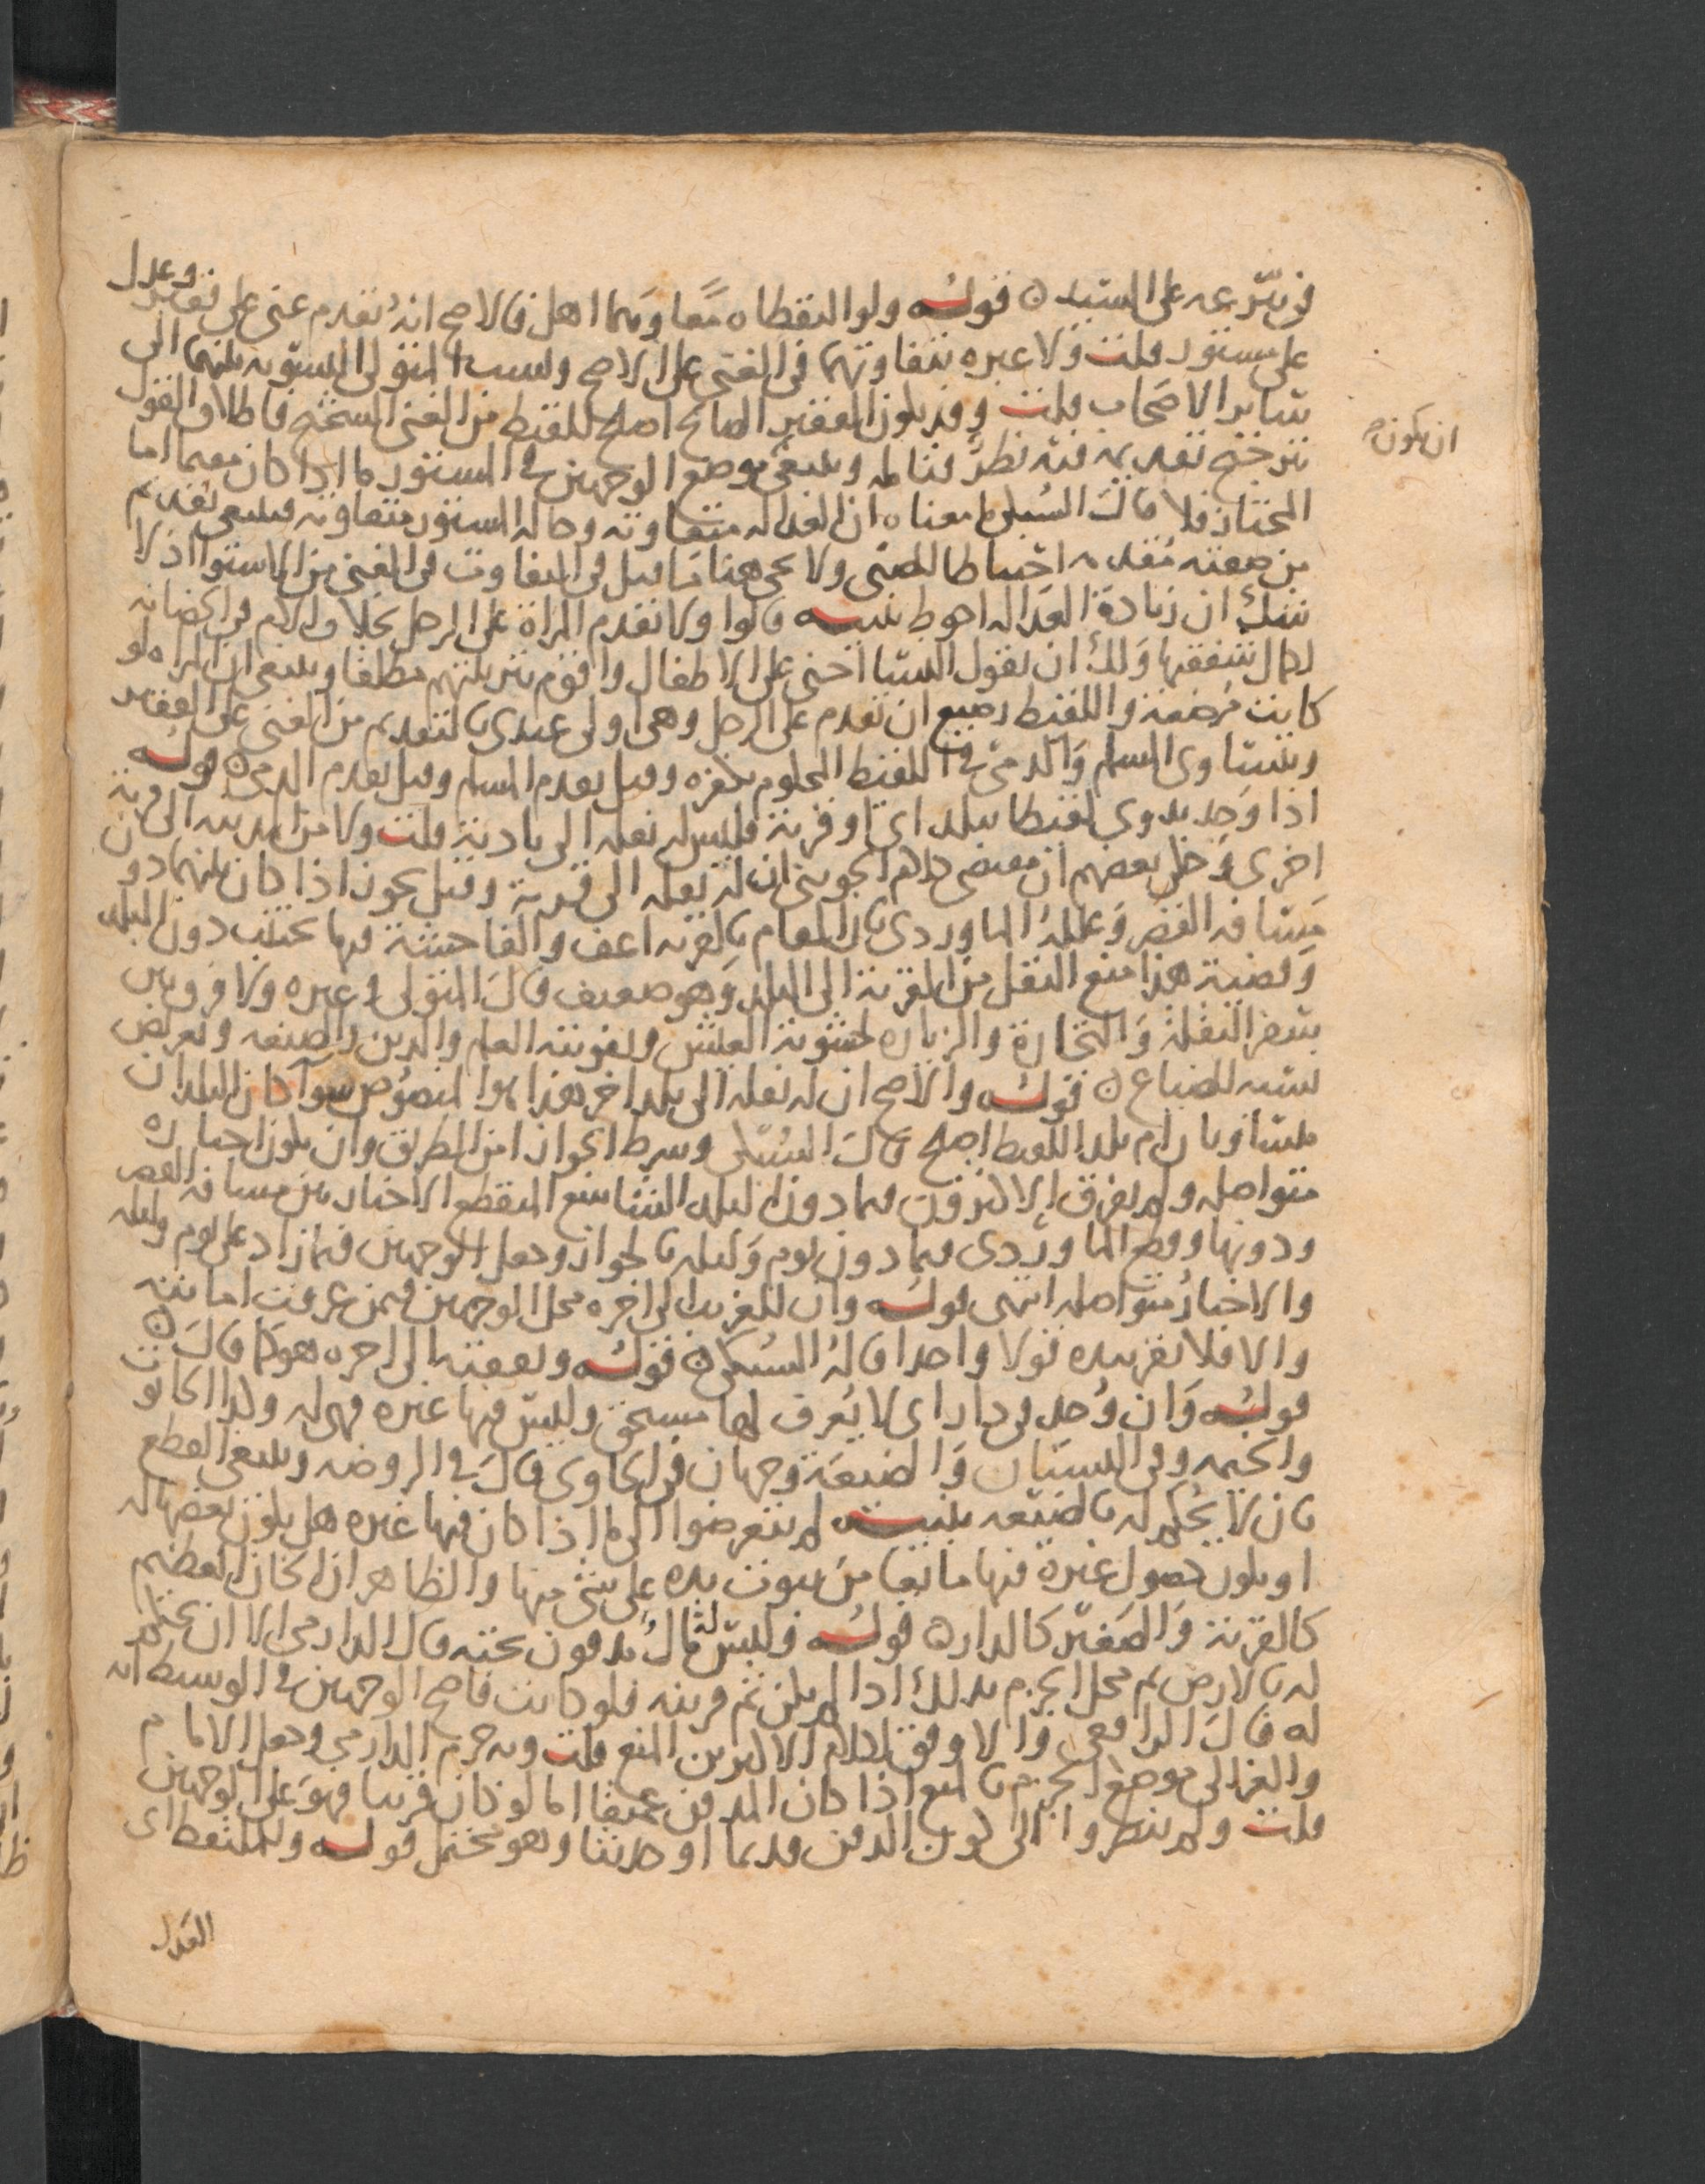 في شرعه على السيد قوله ولو التقطاه معا وهما اهل فالاصح انه يقدم غني على فقير وعدل
على مستور قلت ولا عبرة بتفاوتهما في الغنى على الاصح ونسب المتولي التسوية بينهما الى
ساير الاصحاب قلت وقد يكون الفقير الصالح اصلح للقيط من الغني الشحيح فاطلاق القول
بترجيح تقديمه فيه نظر فتامله وينبغي موضع الوجهين في المستور ما اذا كان معهما اما
ان يكون
المختار فلا قال السبكي معناه ان العدالة متفاوتة وحالة المستور متفاوتة فينبغي تقديم
من صفته مقدمه احتياطا للصبي ولا يجي هنا ما قيل في التفاوت في الغنى من الاستوا اذ لا
شك ان زيادة العدالة احوط تنبيه قالوا ولا تقدم المراة على الرجل بخلاف الام في الحضانة
لكمال شفقتها ولك ان تقول النسا احنى على الاطفال واقوم بتربيتهم مطلقا وينبغي ان المراه لو
كانت مرضعة واللقيط رضيع ان تقدم على الرجل وهي اولى عندي بالتقديم من الغني على الفقير
ويتساوى المسلم والذمي في اللقيط المحكوم بكفره وقيل يقدم المسلم وقيل يقدم الذمي قوله
اذا وجد بدوي لقيطا ببلد اي او قرية فليس له نقله الى بادية قلت ولا من مدينة الى قرية
اخرى وظن بعضهم ان مقتضى كلام الجويني ان له نقله الى قرية وقيل يجوز اذا كان بينهما دون
مسافة القصر وعلله الماوردي بان المقام بالقرية اعف والفاحشة فيها تجتنب دون البلد
وقضية هذا منع النقل من القرية الى البلد وهو ضعيف قال المتولي وغيره ولا فرق بين
سفر النقلة والتجارة والزيارة لخشونة العيش وتفويت العلم والدين والصنعة وتعريض
نسبه للضياع قوله والاصح ان له نقله الى بلد اخر هذا هو المنصوص سوآ كان البلدان
متساويان ام بلد اللقيط اصلح قال السبكي وشرط الجواز امن الطريق وان يكون اخباره
متواصلة ولم يفرق الاكثرون فيما دون البلد الشاسع المنقطع الاخبار بين مسافة القصر
ودونها وقطع الماوردي فيما دون يوم وليلة بالجواز وجعل الوجهين فيما زاد على يوم وليلة
والاخبار متواصلة انتهى قوله وان للغريب الى اخره محل الوجهين فيمن عرفت امانته
والا فلا تقر بيده قولا واحدا قاله السبكي قوله ونفقته الى اخره هو كما قال
قوله وان وجد في دار اي لا يعرف لها مستحق وليس فيها غيره فهي له وكذا الحانوت
والخيمة وفي البستان والضيعة وجهان في الحاوي قال في الروضة وينبغي القطع
بان لا يحكم له بالضيعة تنبيه لم يتعرضوا الى ما اذا كان فيها غيره هل يكون بعضها له
او يكون حصول غيره فيها مانعا من ثبوت يده على شي منها والظاهر ان الخان العظيم
كالقرية والصغير كالدار قوله وليس له مال مدفون تحته قال الدارمي الا ان يحكم
له بالارض ثم محل الجزم بذلك اذا لم يكن ثم قرينة فلو كانت فاصح الوجهين في الوسيط انه
له قال الرافعي والاوفق لكلام الاكثرين المنع قلت وبه جزم الدارمي وجعل الامام
والغزالي موضع الجزم بالمنع اذا كان الدفن عميقا اما لو كان قريبا فهو على الوجهين
قلت ولم ينظروا الى كون الدفن قديما او حديثا وهو محتمل قوله وللملتقط اي
العدل